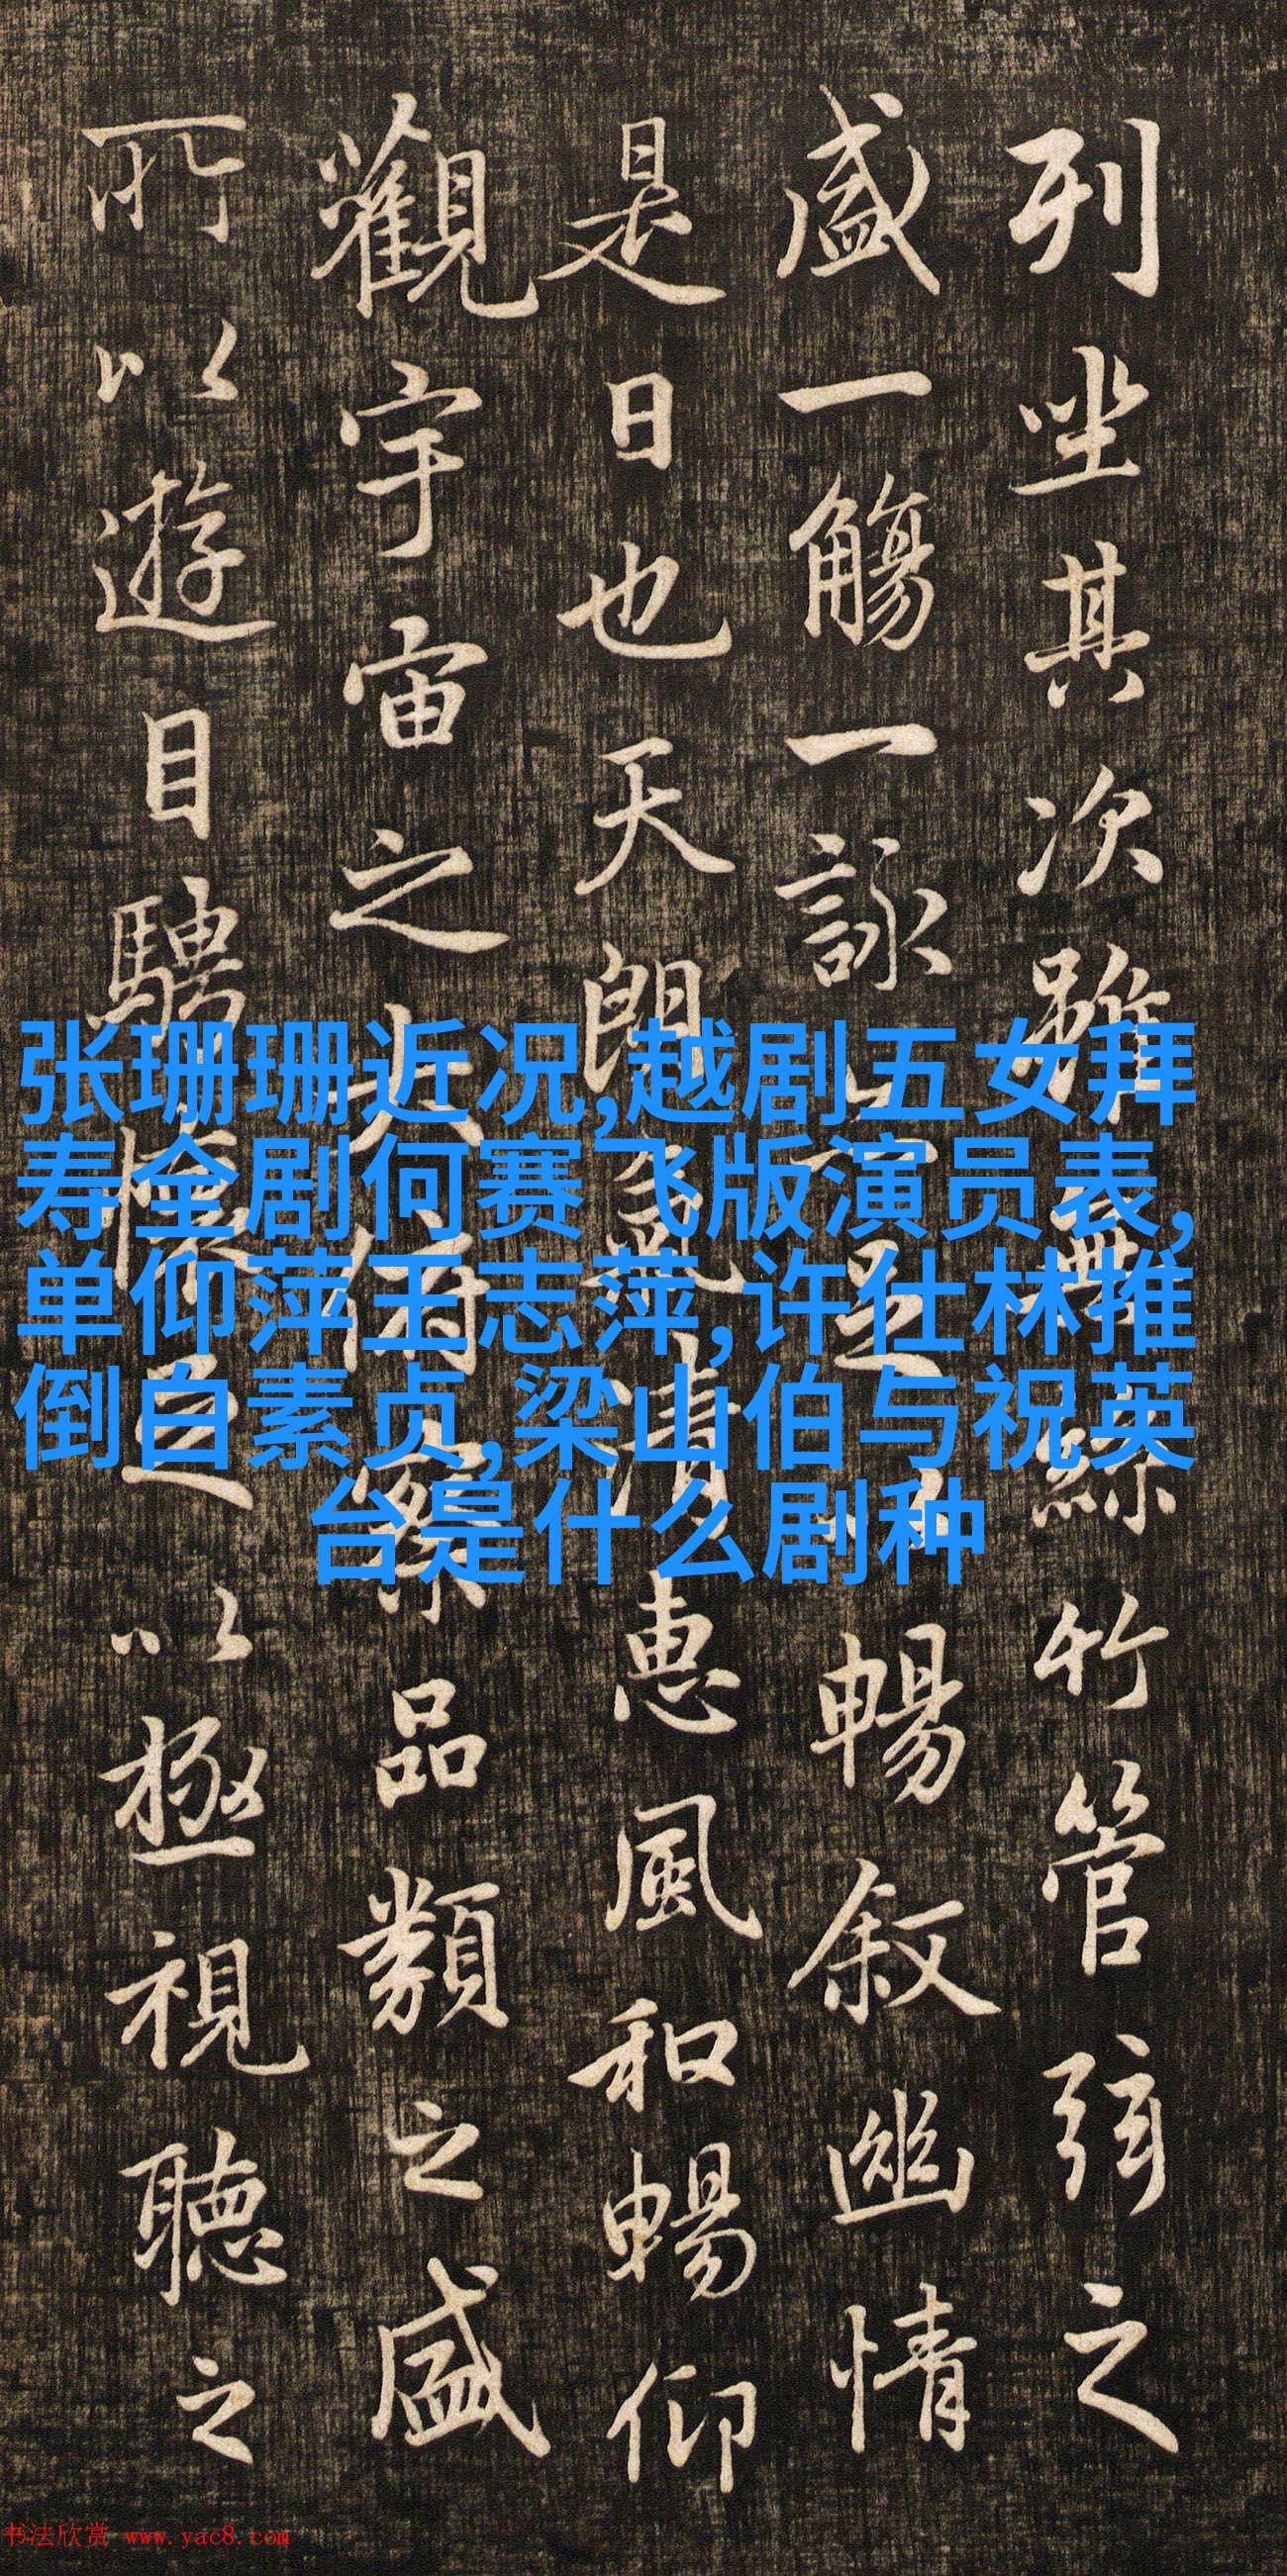 列坐其次雖無絲竹管弦之
盛一觴一詠亦足以暢叙幽情
是日也天朗氣清惠風和暢仰
觀宇宙之大俯察品類之盛
所以遊目騁懷足以極視聽之
张珊珊近况,越剧五女拜
寿全剧何赛飞版演员表,
单仰萍王志萍,许仕林推
倒白素贞,梁山伯与祝英
台是什么剧种
书法欣赏 www.yac8.com